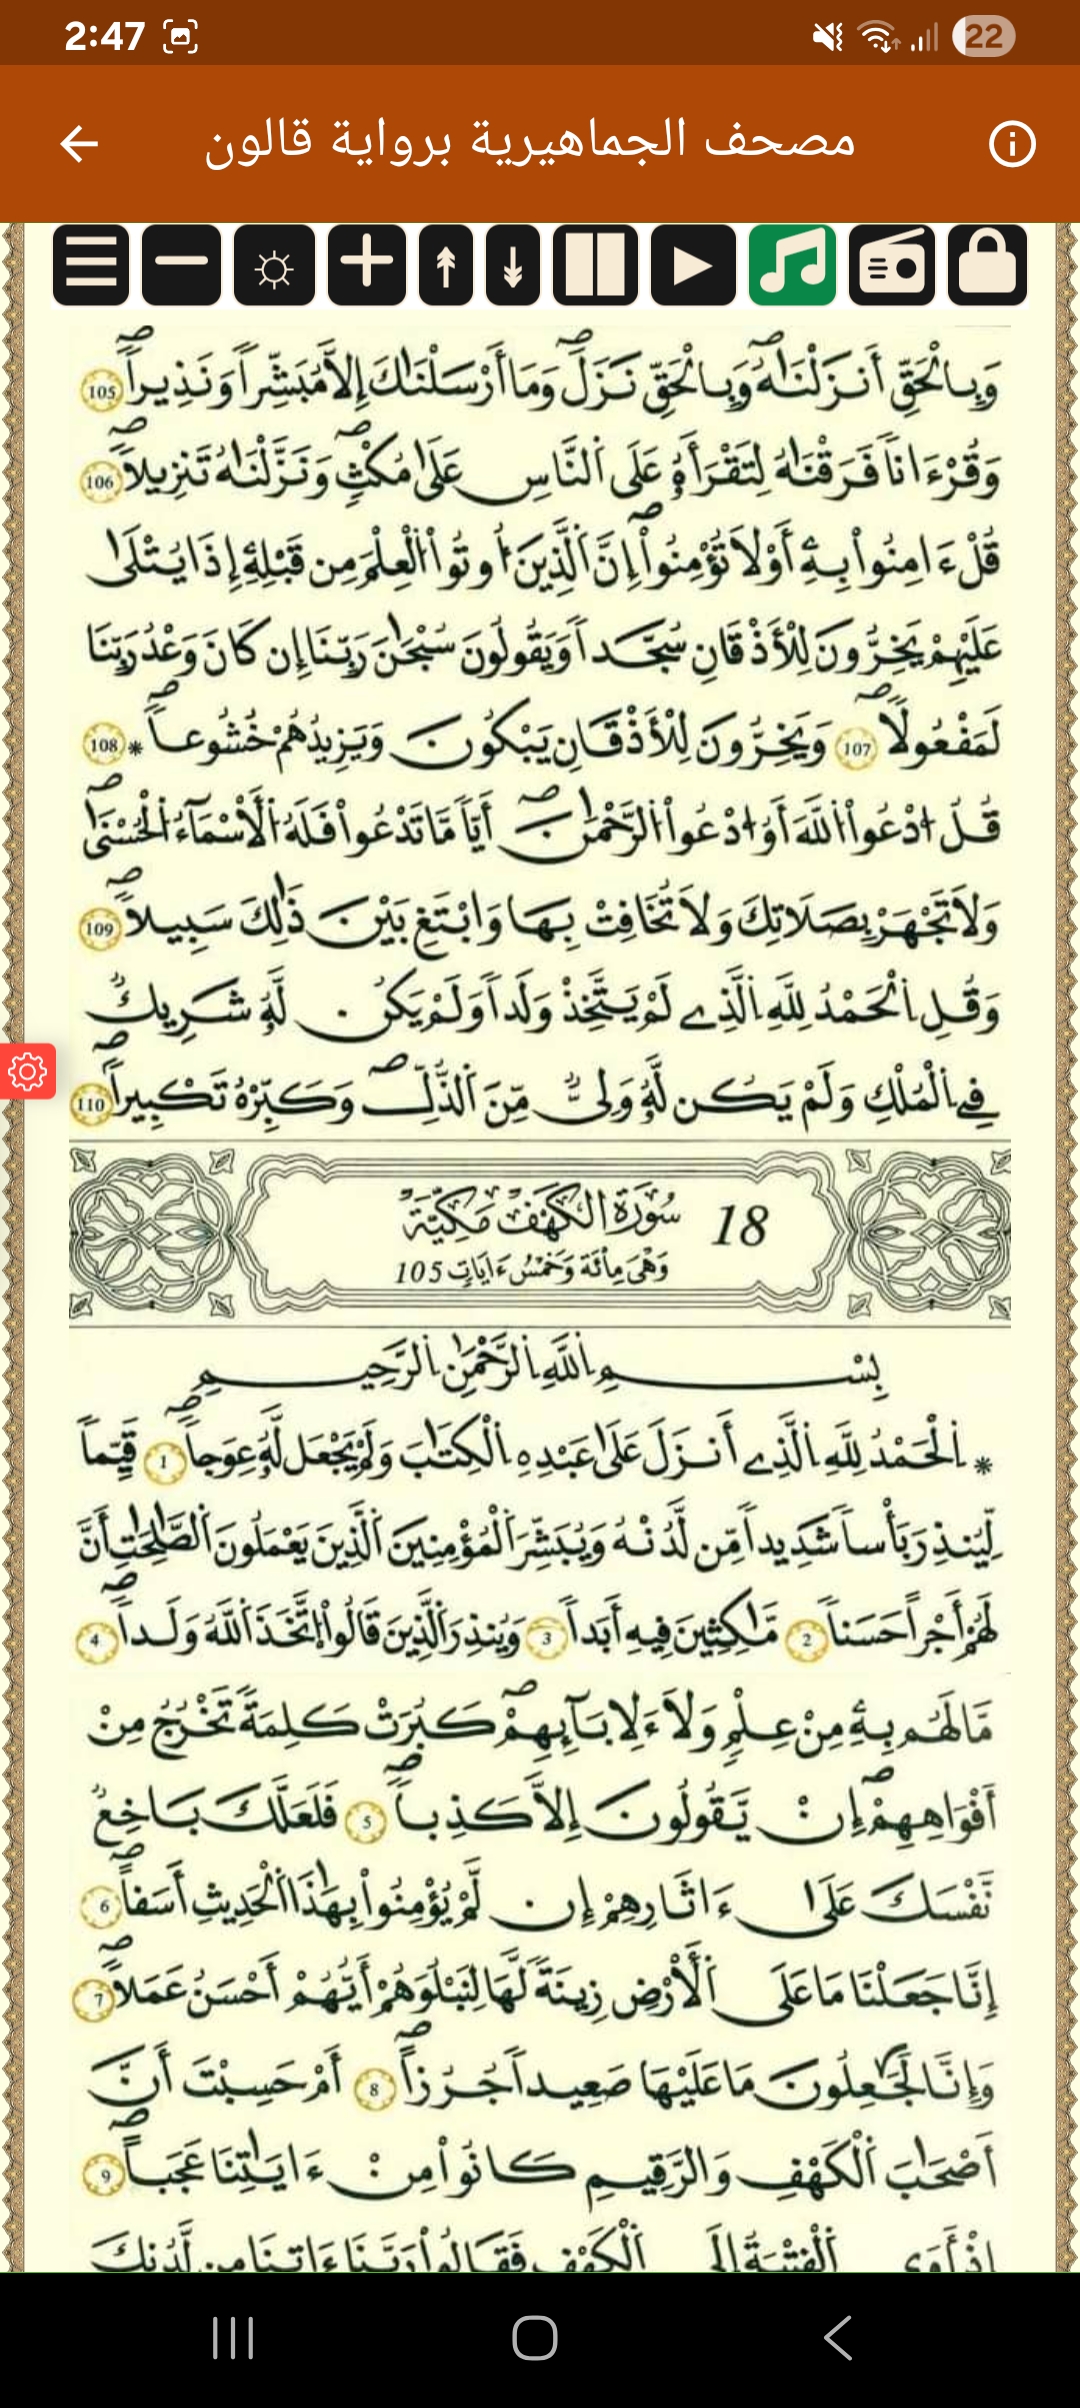 2:47
22
مصحف الجماهيرية برواية قالون
وَبِالْحَقِّ أَنزَلْنَٰهُ وَبِالْحَقِّ نَزَلَ وَمَا أَرْسَلْنَٰكَ إِلَّا مُبَشِّراً وَنَذِيراً 105
وَقُرْءَاناً فَرَقْنَٰهُ لِتَقْرَأَهُۥ عَلَى اَلنَّاسِ عَلَىٰ مُكْثٍ وَنَزَّلْنَٰهُ تَنزِيلاً 106
قُلْ ءَامِنُواْ بِهِۦ أَوْ لَا تُؤْمِنُواْ إِنَّ اَلَّذِينَ أُوتُواْ اُلْعِلْمَ مِن قَبْلِهِۦ إِذَا يُتْلَىٰ
عَلَيْهِمْ يَخِرُّونَ لِلْأَذْقَانِ سُجَّداً وَيَقُولُونَ سُبْحَٰنَ رَبِّنَا إِن كَانَ وَعْدُ رَبِّنَا
لَمَفْعُولاً 107 وَيَخِرُّونَ لِلْأَذْقَانِ يَبْكُونَ وَيَزِيدُهُمْ خُشُوعاً * 108
قُلُ اُدْعُواْ اُللَّهَ أَوُ اُدْعُواْ اُلرَّحْمَٰنَ أَيّاً مَّا تَدْعُواْ فَلَهُ اُلْأَسْمَآءُ اُلْحُسْنَىٰ
وَلَا تَجْهَرْ بِصَلَاتِكَ وَلَا تُخَافِتْ بِهَا وَابْتَغِ بَيْنَ ذَٰلِكَ سَبِيلاً 109
وَقُلِ اِلْحَمْدُ لِلَّهِ اِلَّذِے لَمْ يَتَّخِذْ وَلَداً وَلَمْ يَكُن لَّهُۥ شَرِيكٌ
فِے اِلْمُلْكِ وَلَمْ يَكُن لَّهُۥ وَلِيٌّ مِّنَ اَلذُّلِّ وَكَبِّرْهُ تَكْبِيراً 110
18 سُورَةُ الكَهْفِ مَكِّيَّةٌ
وَهْيَ مِاْئَةٌ وَخَمْسُ ءَايَاتٍ 105
بِسْمِ اِللَّهِ اِلرَّحْمَٰنِ اِلرَّحِيمِ
* اَلْحَمْدُ لِلَّهِ اِلَّذِے أَنزَلَ عَلَىٰ عَبْدِهِ اِلْكِتَٰبَ وَلَمْ يَجْعَل لَّهُۥ عِوَجاً 1 قَيِّماً
لِّيُنذِرَ بَأْساً شَدِيداً مِّن لَّدُنْهُ وَيُبَشِّرَ اَلْمُؤْمِنِينَ اَلَّذِينَ يَعْمَلُونَ اَلصَّٰلِحَٰتِ أَنَّ
لَهُمْ أَجْراً حَسَناً 2 مَّٰكِثِينَ فِيهِ أَبَداً 3 وَيُنذِرَ اَلَّذِينَ قَالُواْ اُتَّخَذَ اَللَّهُ وَلَداً 4
مَّا لَهُم بِهِۦ مِنْ عِلْمٍ وَلَا ءَلِابَآئِهِمْ كَبُرَتْ كَلِمَةً تَخْرُجُ مِنْ
أَفْوَاهِهِمْ إِنْ يَّقُولُونَ إِلَّا كَذِباً 5 فَلَعَلَّكَ بَاخِعٌ
نَّفْسَكَ عَلَىٰ ءَاثَارِهِمْ إِن لَّمْ يُؤْمِنُواْ بِهَٰذَا اَلْحَدِيثِ أَسَفاً 6
إِنَّا جَعَلْنَا مَا عَلَى اَلْأَرْضِ زِينَةً لَّهَا لِنَبْلُوَهُمْ أَيُّهُمْ أَحْسَنُ عَمَلاً 7
وَإِنَّا لَجَٰعِلُونَ مَا عَلَيْهَا صَعِيداً جُرُزاً 8 أَمْ حَسِبْتَ أَنَّ
أَصْحَٰبَ اَلْكَهْفِ وَالرَّقِيمِ كَانُواْ مِنْ ءَايَٰتِنَا عَجَباً 9
إِذْ أَوَى اَلْفِتْيَةُ إِلَى اَلْكَهْفِ فَقَالُواْ رَبَّنَا ءَاتِنَا مِن لَّدُنكَ